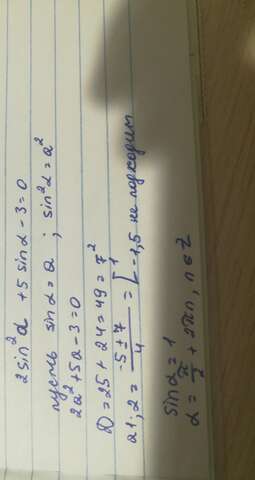 2 sin²α + 5 sin α - 3 = 0
пусть sin α = a ; sin²α = a²
2a² + 5a - 3 = 0
D = 25 + 24 = 49 = 7²
a1,2 = (-5 ± 7) / 4 = [ 1 -1,5 не подходит
sin α = 1
α = π/2 + 2πn, n ∈ Z